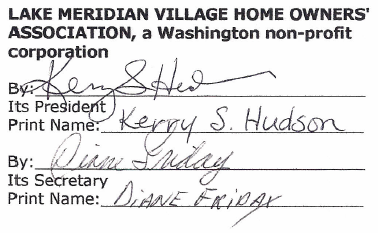 LAKE MERIDIAN VILLAGE HOME OWNERS'
ASSOCIATION, a Washington non-profit
corporation
By: Kerry S Hudson
Its President
Print Name: Kerry S. Hudson
By: Diane Friday
Its Secretary
Print Name: DIANE FRIDAY